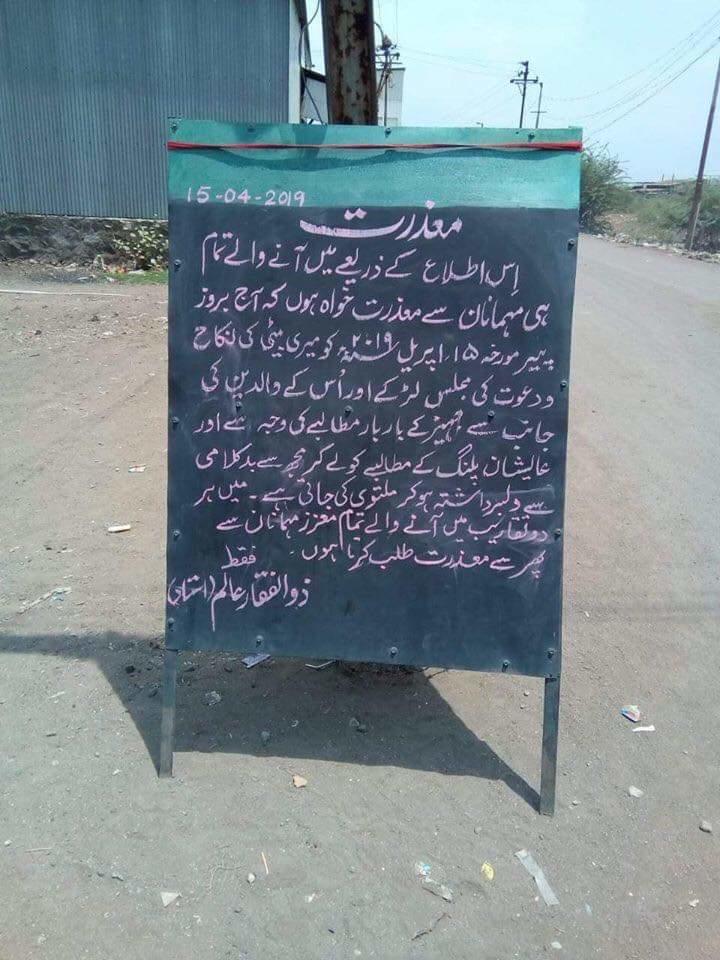 15-04-2019
معذرت
اِس اطلاع کے ذریعے میں آنے والے تمام
ہی مہمانان سے معذرت خواہ ہوں کہ آج بروز
پیر مورخہ ۱۵ اپریل ۲۰۱۹؁ء کو میری بیٹی کی نکاح
و دعوت کی مجلس لڑکے اور اُس کے والدین کی
جانب سے جہیز کے بار بار مطالبے کی وجہ سے اور
عالیشان پلنگ کے مطالبے کو لے کر مجھ سے بدکلامی
سے دلبرداشتہ ہوکر ملتوی کی جاتی ہے۔ میں ہر
دو تقاریب میں آنے والے تمام معزز مہمانان سے
پھر سے معذرت طلب کرتا ہوں۔
فقط
ذوالفقار عالم (استاد)